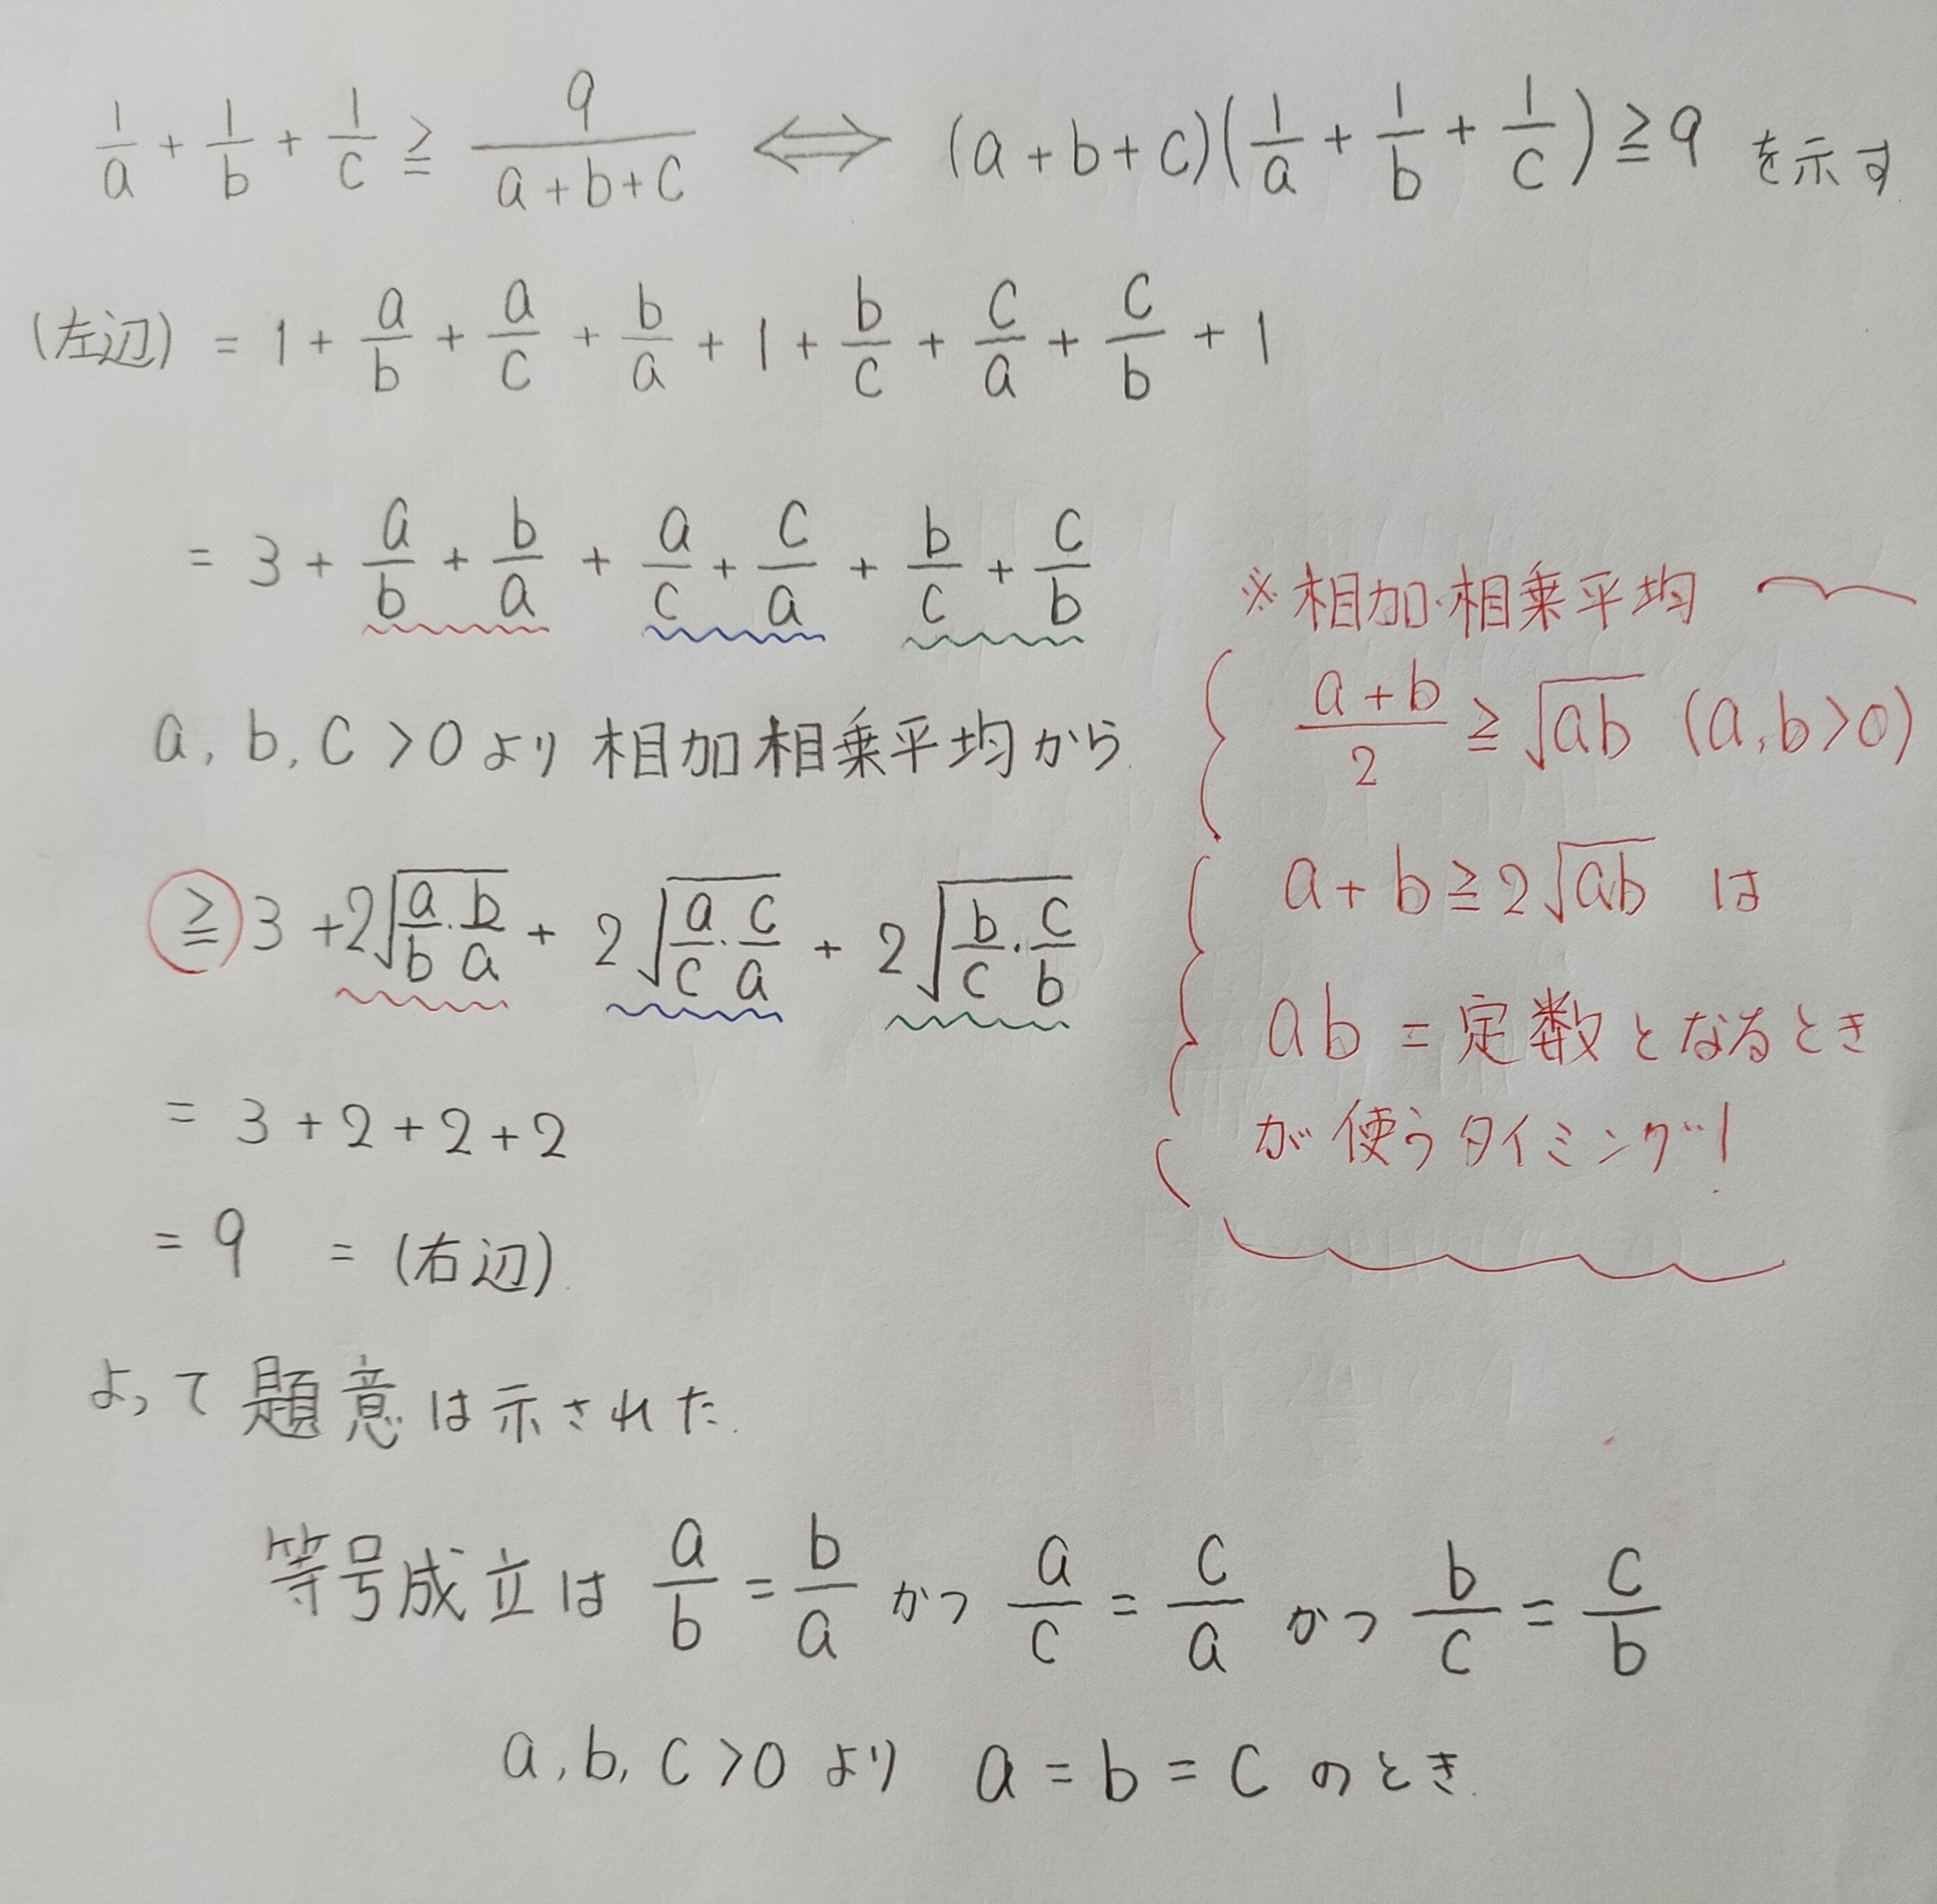 1/a + 1/b + 1/c ≧ 9/(a+b+c) ⟺ (a+b+c)(1/a + 1/b + 1/c) ≧ 9 を示す
(左辺) = 1 + a/b + a/c + b/a + 1 + b/c + c/a + c/b + 1
= 3 + a/b + b/a + a/c + c/a + b/c + c/b
a, b, c > 0 より 相加相乗平均から
≧ 3 + 2√(a/b・b/a) + 2√(a/c・c/a) + 2√(b/c・c/b)
= 3 + 2 + 2 + 2
= 9 = (右辺)
よって 題意は示された.
※相加・相乗平均
(a+b)/2 ≧ √ab (a, b>0)
a + b ≧ 2√ab は
ab = 定数となるとき
が使うタイミング!
等号成立は a/b = b/a かつ a/c = c/a かつ b/c = c/b
a, b, c > 0 より a = b = c のとき.